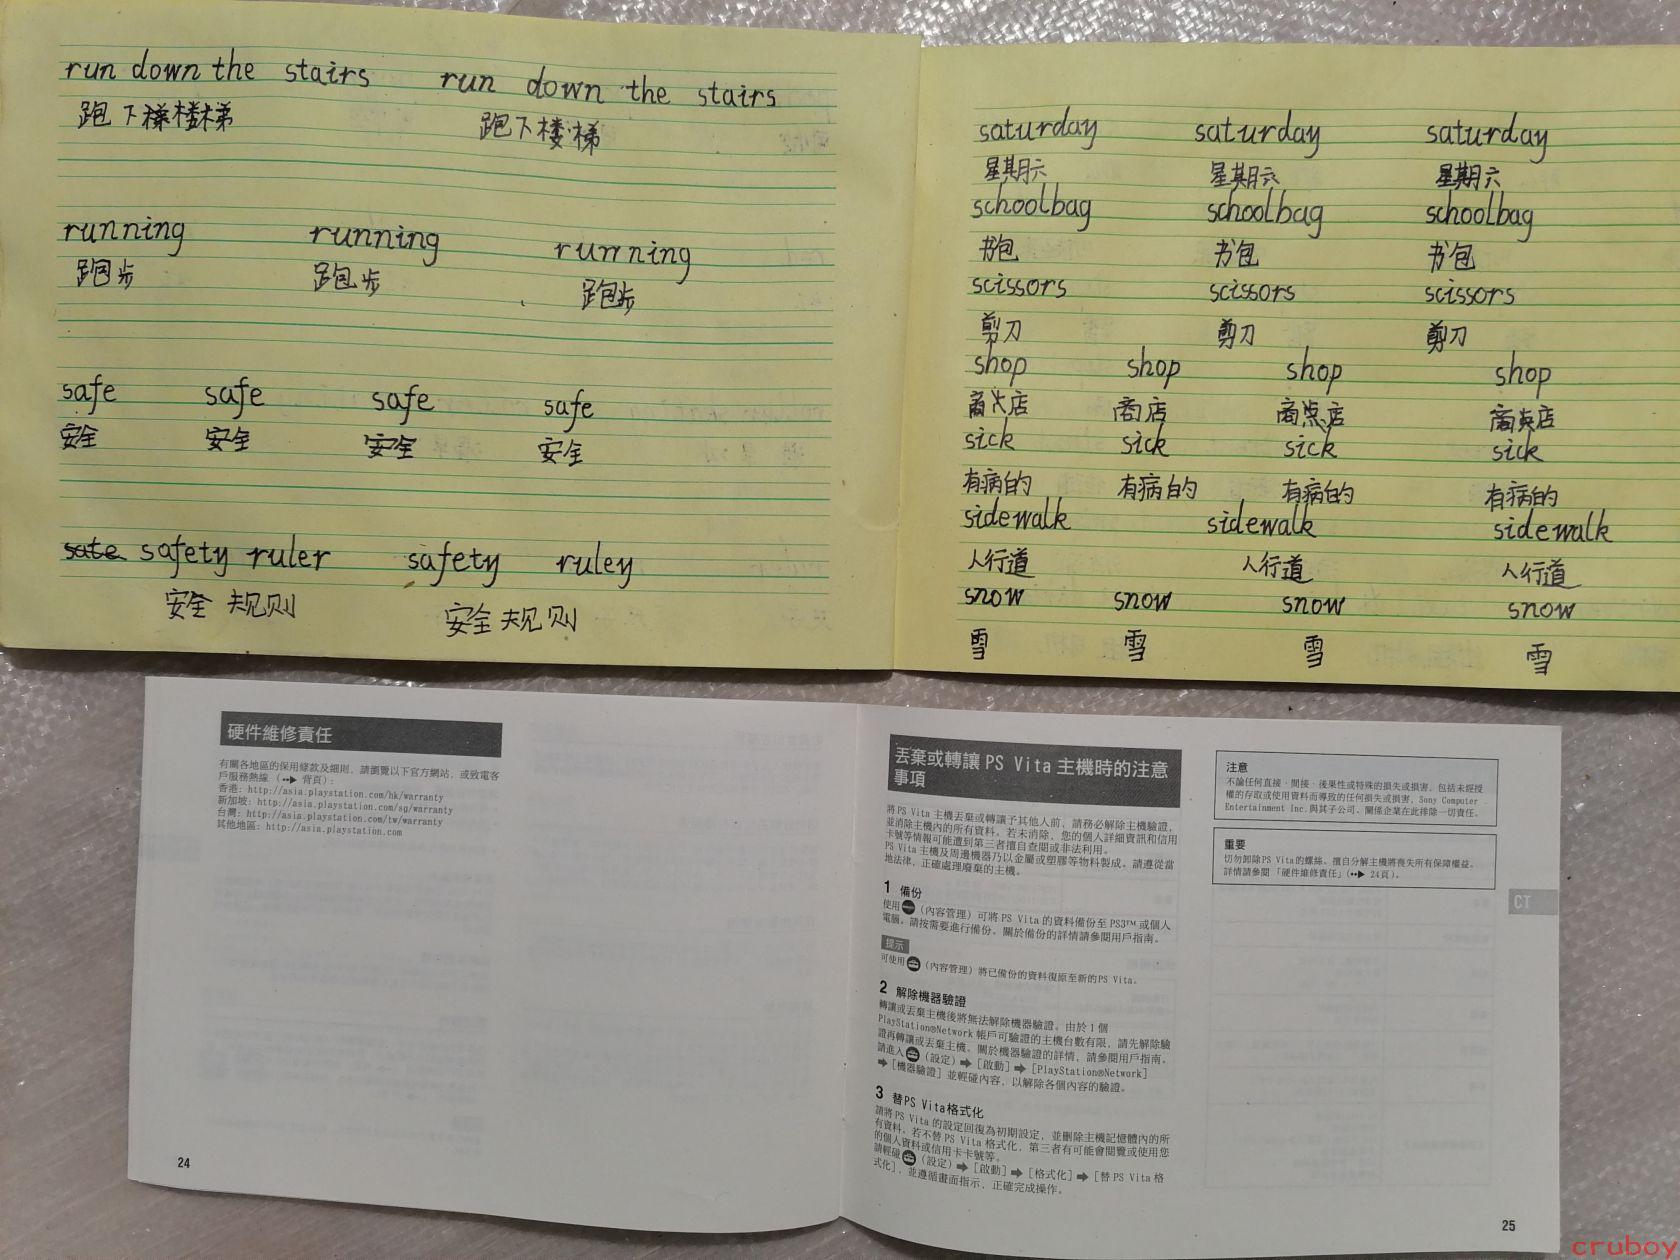 run down the stairs run down the stairs
跑下楼梯 跑下楼梯
running running running
跑步 跑步 跑步
safe safe safe safe
安全 安全 安全 安全
safety ruler safety ruley
安全规则 安全规则
saturday saturday saturday
星期六 星期六 星期六
schoolbag schoolbag schoolbag
书包 书包 书包
scissors scissors scissors
剪刀 剪刀 剪刀
shop shop shop shop
商店 商店 商店 商店
sick sick sick sick
有病的 有病的 有病的 有病的
sidewalk sidewalk sidewalk
人行道 人行道 人行道
snow snow snow snow
雪 雪 雪 雪
硬件維修責任
有關各地區的保用條款及細則，請瀏覽以下官方網站，或致電客
戶服務熱線（ 背頁）：
香港：http://asia.playstation.com/hk/warranty
新加坡：http://asia.playstation.com/sg/warranty
台灣：http://asia.playstation.com/tw/warranty
其他地區：http://asia.playstation.com
24
丟棄或轉讓 PS Vita 主機時的注意
事項
將PS Vita 主機丟棄或轉讓予其他人前，請務必解除主機驗證，
並消除主機內的所有資料。若未消除，您的個人詳細資訊和信用
卡號等情報可能遭到第三者擅自查閱或非法利用。
PS Vita 主機及周邊機器乃以金屬或塑膠等物料製成。請遵從當
地法律，正確處理廢棄的主機。
1 備份
使用（內容管理）可將 PS Vita 的資料備份至 PS3™ 或個人
電腦。請按需要進行備份。關於備份的詳情請參閱用戶指南。
提示
可使用（內容管理）將已備份的資料復原至新的PS Vita。
2 解除機器驗證
轉讓或丟棄主機後將無法解除機器驗證。由於 1 個
PlayStation®Network 帳戶可驗證的主機台數有限，請先解除驗
證再轉讓或丟棄主機。關於機器驗證的詳情，請參閱用戶指南。
請進入（設定）➡［啟動］➡［PlayStation®Network］
➡［機器驗證］並輕碰內容，以解除各個內容的驗證。
3 替PS Vita格式化
請將 PS Vita 的設定回復為初期設定，並刪除主機記憶體內的所
有資料。若不替 PS Vita 格式化，第三者有可能會閱覽或使用您
的個人資料或信用卡卡號等。
請輕碰（設定）➡［啟動］➡［格式化］➡［替 PS Vita 格
式化］，並遵循畫面指示，正確完成操作。
注意
不論任何直接、間接、後果性或特殊的損失或損害，包括未經授
權的存取或使用資料而導致的任何損失或損害，Sony Computer
Entertainment Inc.與其子公司、關係企業在此排除一切責任。
重要
切勿卸除PS Vita的螺絲。擅自分解主機將喪失所有保障權益。
詳情請參閱「硬件維修責任」（ 24頁）。
CT
25
cruboy